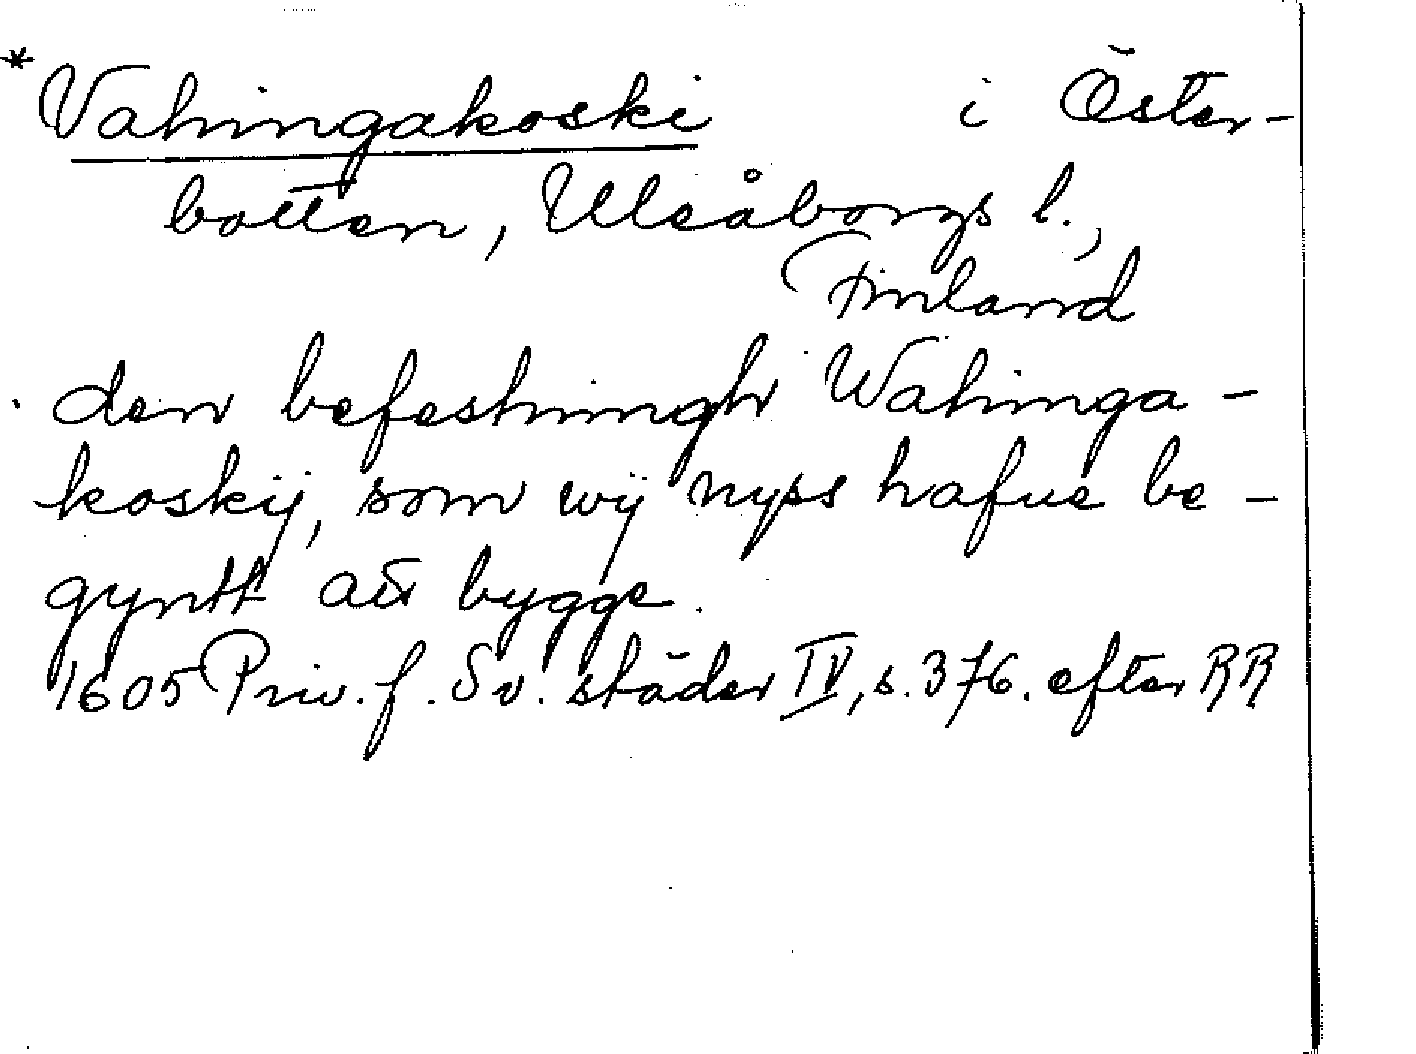 * Vahingakoski i Öster-
botten, Uleåborgs l.,
Finland
den befestningh Wahinga-
koskij, som wij nyss hafue be-
gyntt att bygge.
1605 Priv. f. Sv. städer IV, s. 376. efter RR